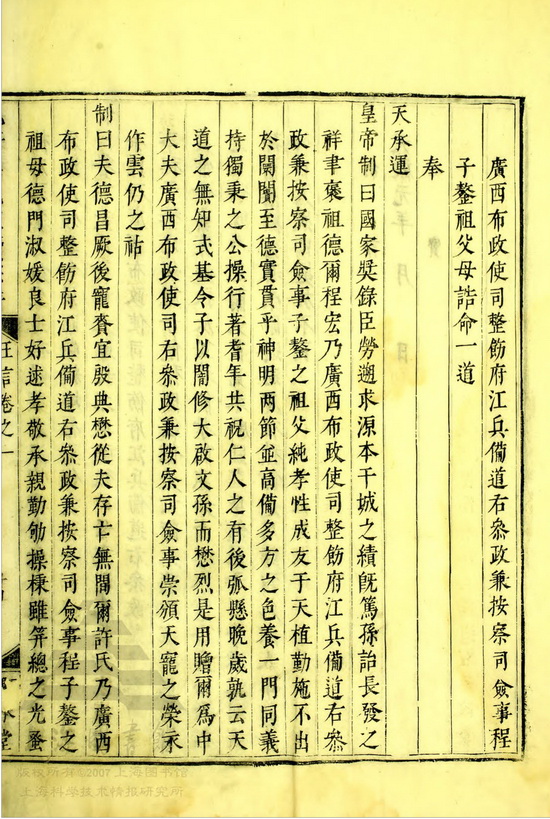 廣西布政使司整飭府江兵備道右參政兼按察司僉事程
子鏊祖父母誥命一道
奉
天承運
皇帝制曰國家奬錄臣勞遡求源本干城之績旣篤孫詒長發之
祥聿褒祖德爾程宏乃廣西布政使司整飭府江兵備道右叅
政兼按察司僉事子鏊之祖父純孝性成友于天植勤施不出
於閫闥至德實貫乎神明兩節並高備多方之色養一門同義
持獨秉之公操行著耆年共祝仁人之有後弧懸晚歲孰云天
道之無知式基令子以闇修大啟文孫而懋烈是用贈爾爲中
大夫廣西布政使司右叅政兼按察司僉事崇頒天寵之榮永
作雲仍之祜
制曰夫德昌厥後寵賚宜殷典懋從夫存亡無間爾許氏乃廣西
布政使司整飭府江兵備道右叅政兼按察司僉事程子鏊之
祖母德門淑媛良士好逑孝敬承親勤劬操棟雖笄總之光蚤
卷之一
堂
版权所有©2007上海图书馆
上海科学技术情报研究所